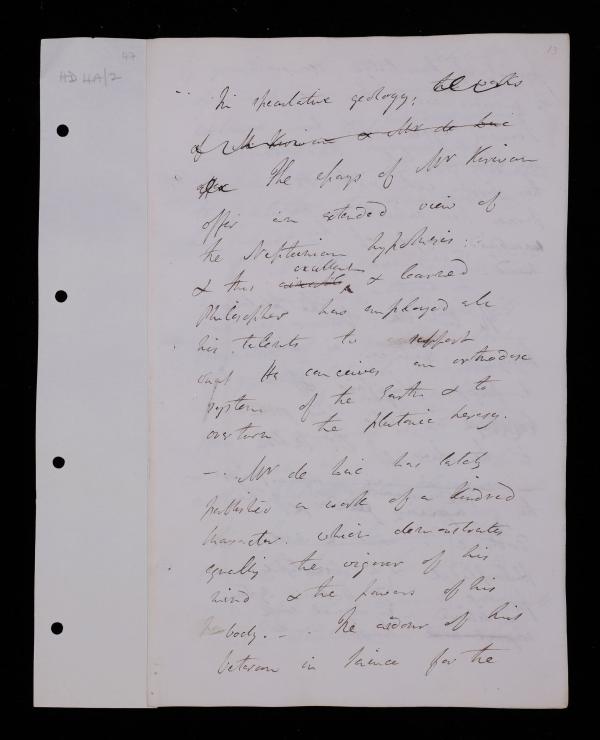 47
HD 4A/2
13
In speculative geology; the works
of Mr Kirwan & Mr de Luc
The essays of Mr Kirwan
offer an extended view of
the Neptunian hypothesis:
excellent
& this & learned
Philosopher has employed all
his talents to support
what He conceives an orthodox
system of the Earth & to
overturn the plutonic heresy.
— Mr de Luc has lately
published a work of a kindred
character. which demonstrates
equally the vigour of his
mind & the powers of his
body. — . The ardour of this
veteran in Science for the